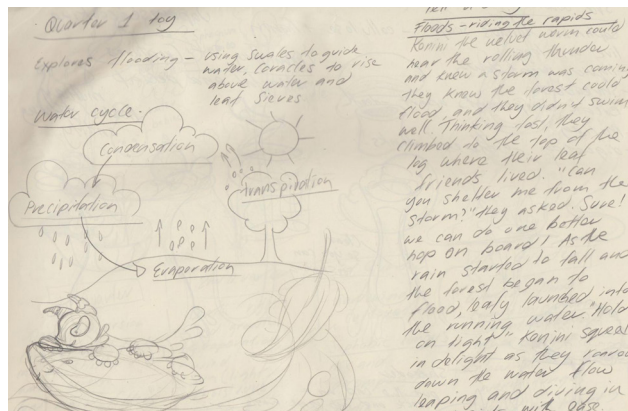 Quarter 1 toy
Explores flooding - using swales to guide
water, coracles to rise
above water and
leaf sieves
Water cycle.
Condensation
Precipitation
transpiration
Evaporation
Floods - riding the rapids
Konini the velvet worm could
hear the rolling thunder
and knew a storm was coming
they knew the forest could
flood, and they didn't swim
well. Thinking fast, they
climbed to the top of the
log where their leaf
friends lived. "Can
you shelter me from the
storm?" they asked. Sure!
we can do one better
hop on board! As the
rain started to fall and
the forest began to
flood, leafy launched into
the running water. "Hold
on tight" Konini
in delight as they
down the water flow
leaping and diving in
with ease.